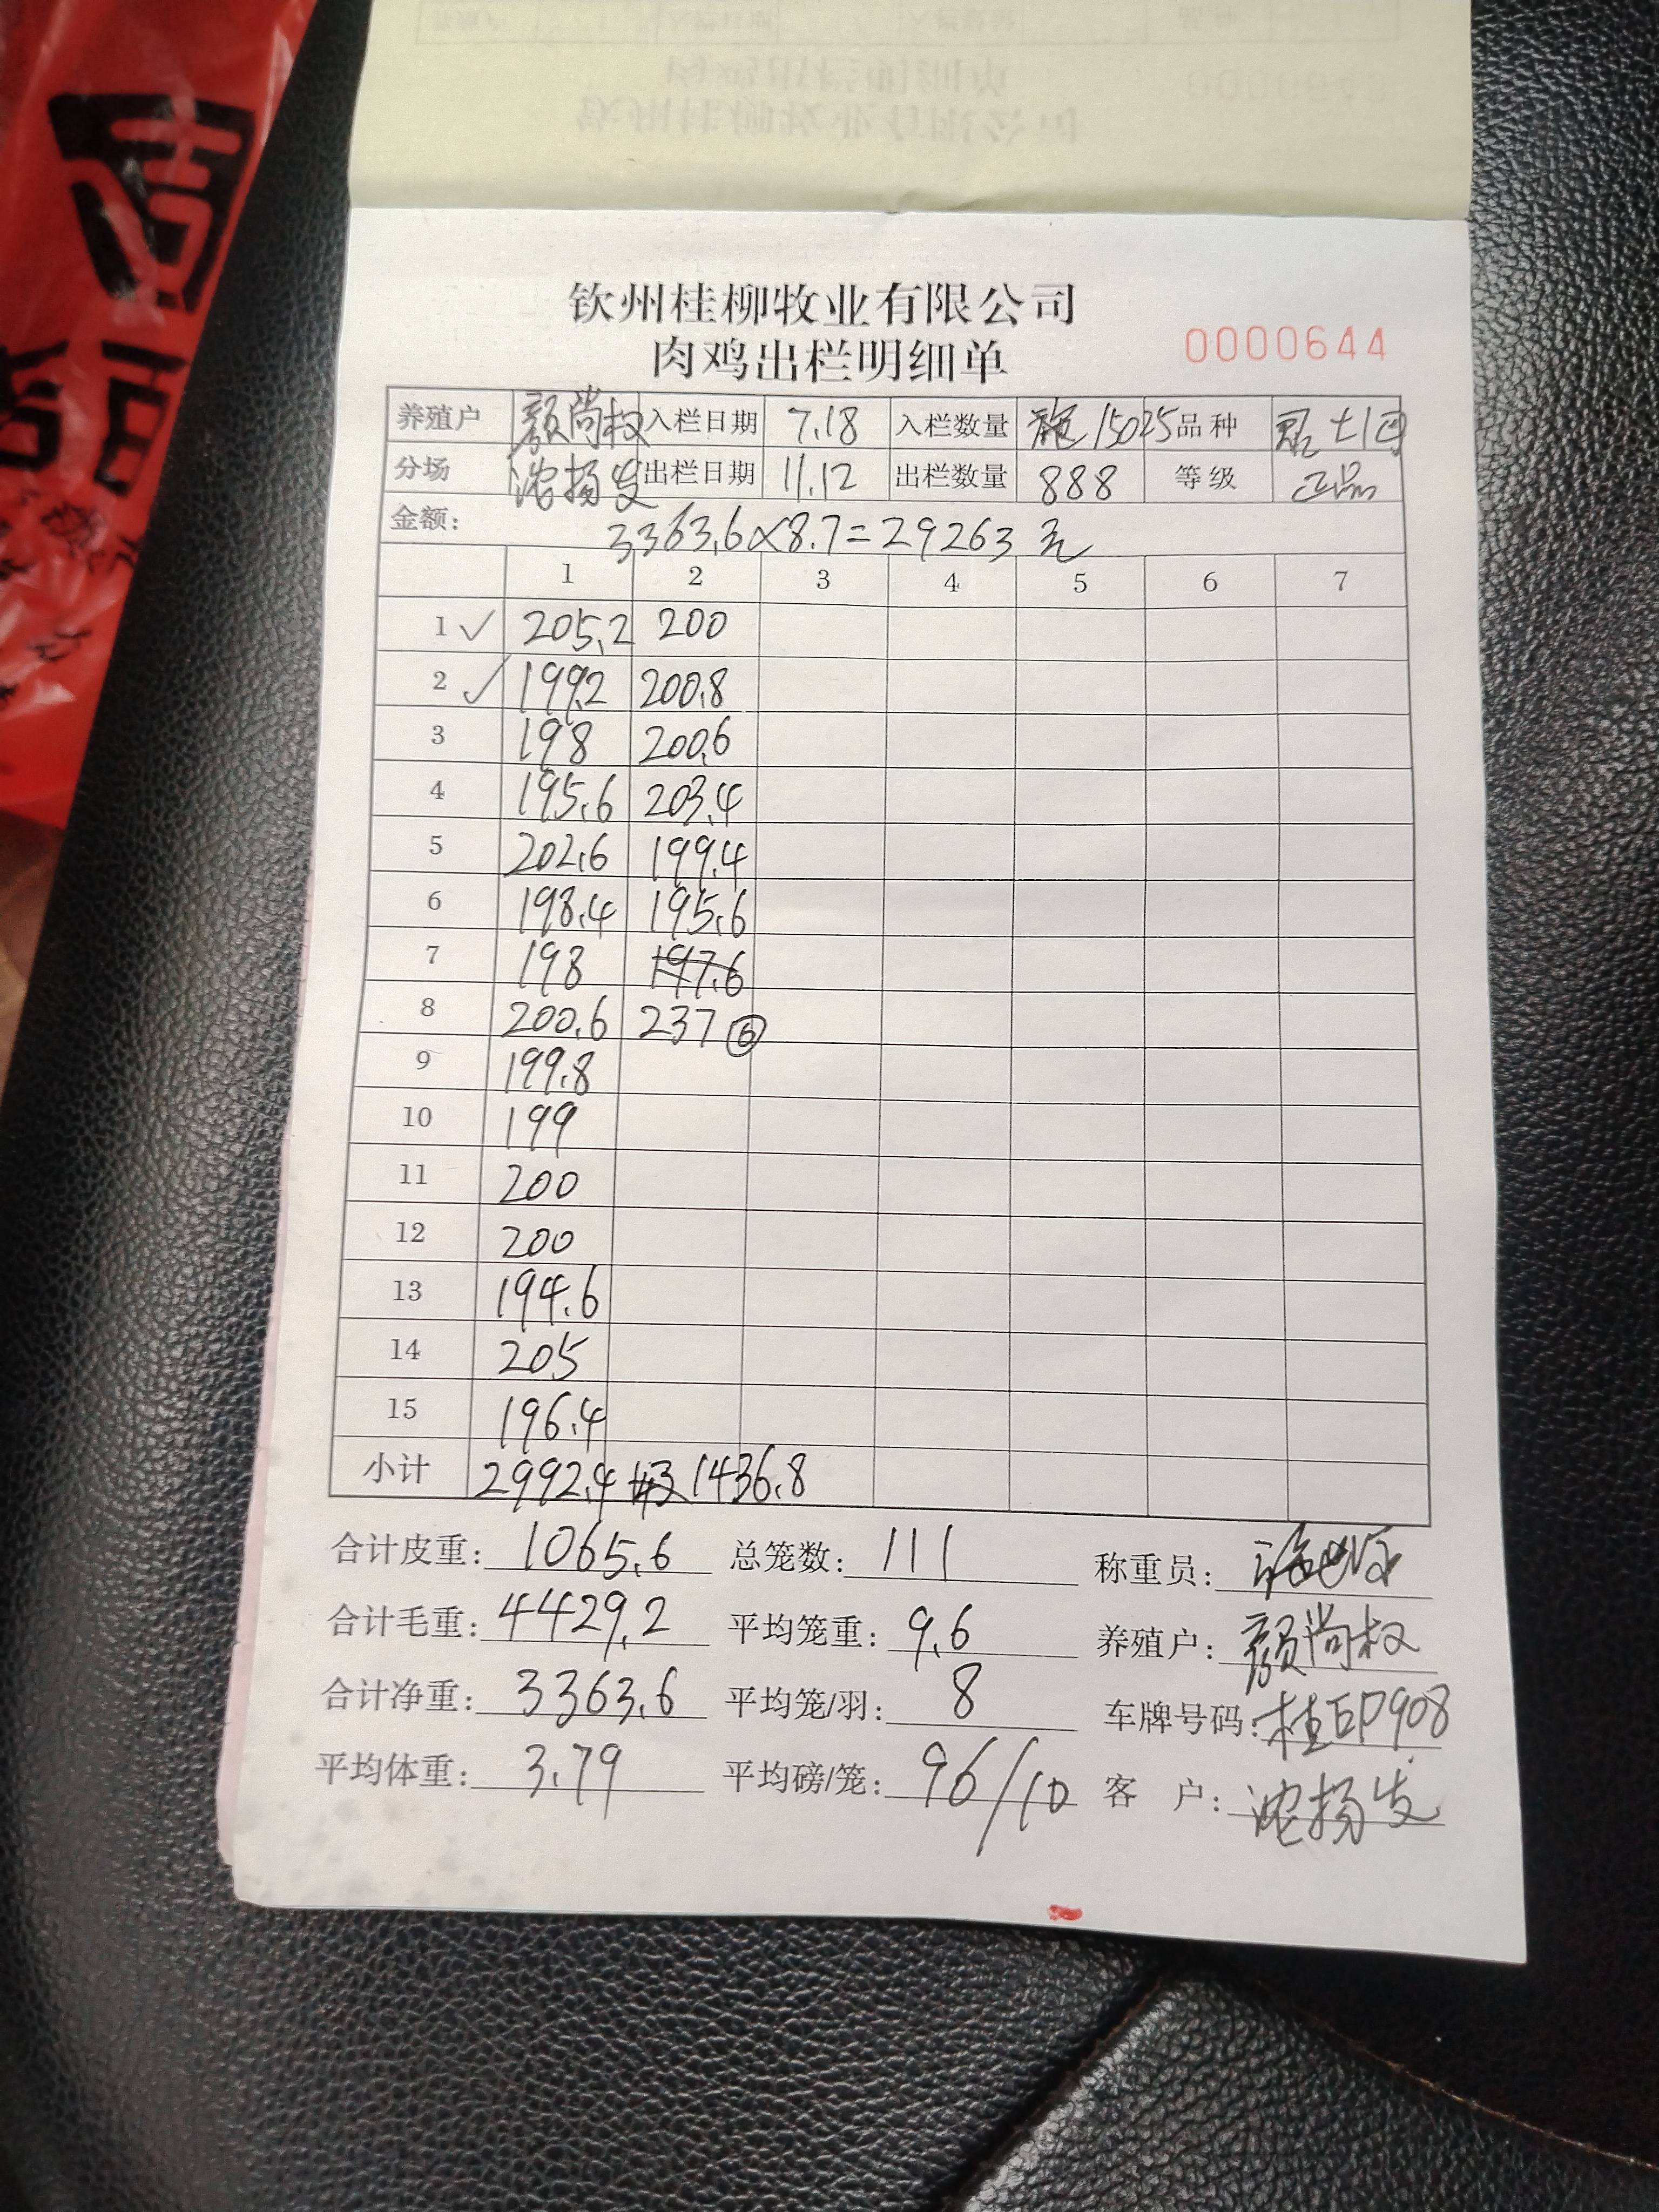 钦州桂柳牧业有限公司
肉鸡出栏明细单
0000644
养殖户 颜尚权 入栏日期 7.18 入栏数量 15025 品种
分场 浓扬发 出栏日期 11.12 出栏数量 888 等级 正品
金额: 3363.6×8.7=29263 元
1 2 3 4 5 6 7
1 ✓ 205.2 200
2 ✓ 199.2 200.8
3 198 200.6
4 195.6 203.4
5 202.6 199.4
6 198.4 195.6
7 198 197.6
8 200.6 237 ⑥
9 199.8
10 199
11 200
12 200
13 194.6
14 205
15 196.4
小计 2992.4 1436.8
合计皮重: 1065.6 总笼数: 111 称重员:
合计毛重: 4429.2 平均笼重: 9.6 养殖户: 颜尚权
合计净重: 3363.6 平均笼/羽: 8 车牌号码:
平均体重: 3.79 平均磅/笼: 96/10 客 户: 浓扬发